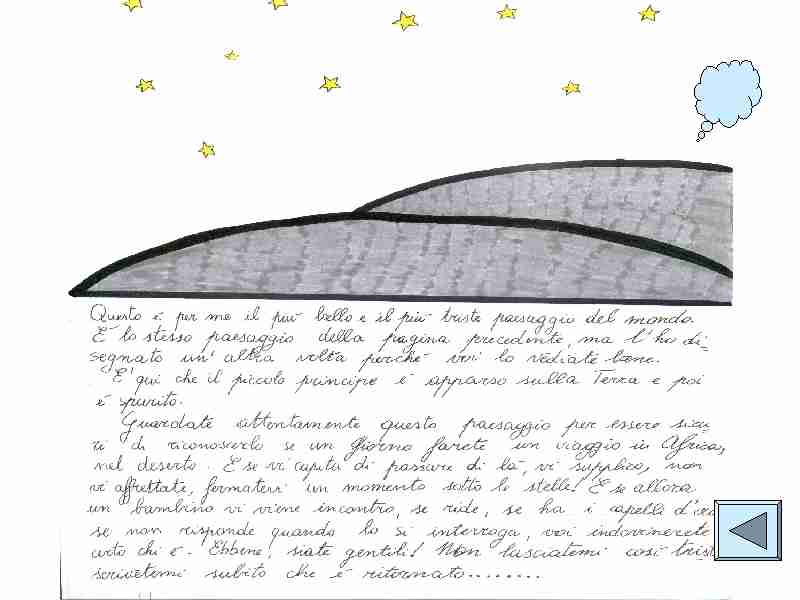 Questo è per me il più bello e il più triste paesaggio del mondo.
È lo stesso paesaggio della pagina precedente, ma l'ho di=
segnato un'altra volta perché voi lo vediate bene.
È qui che il piccolo principe è apparso sulla Terra e poi
è sparito.
Guardate attentamente questo paesaggio per essere sicu
ri di riconoscerlo se un giorno farete un viaggio in Africa,
nel deserto. E se vi capita di passare di là, vi supplico, non
vi affrettate, fermatevi un momento sotto le stelle! E se allora
un bambino vi viene incontro, se ride, se ha i capelli d'
se non risponde quando lo si interroga, voi indovinerete
certo chi è. Ebbene, siate gentili! Non lasciatemi così trist
scrivetemi subito che è ritornato........